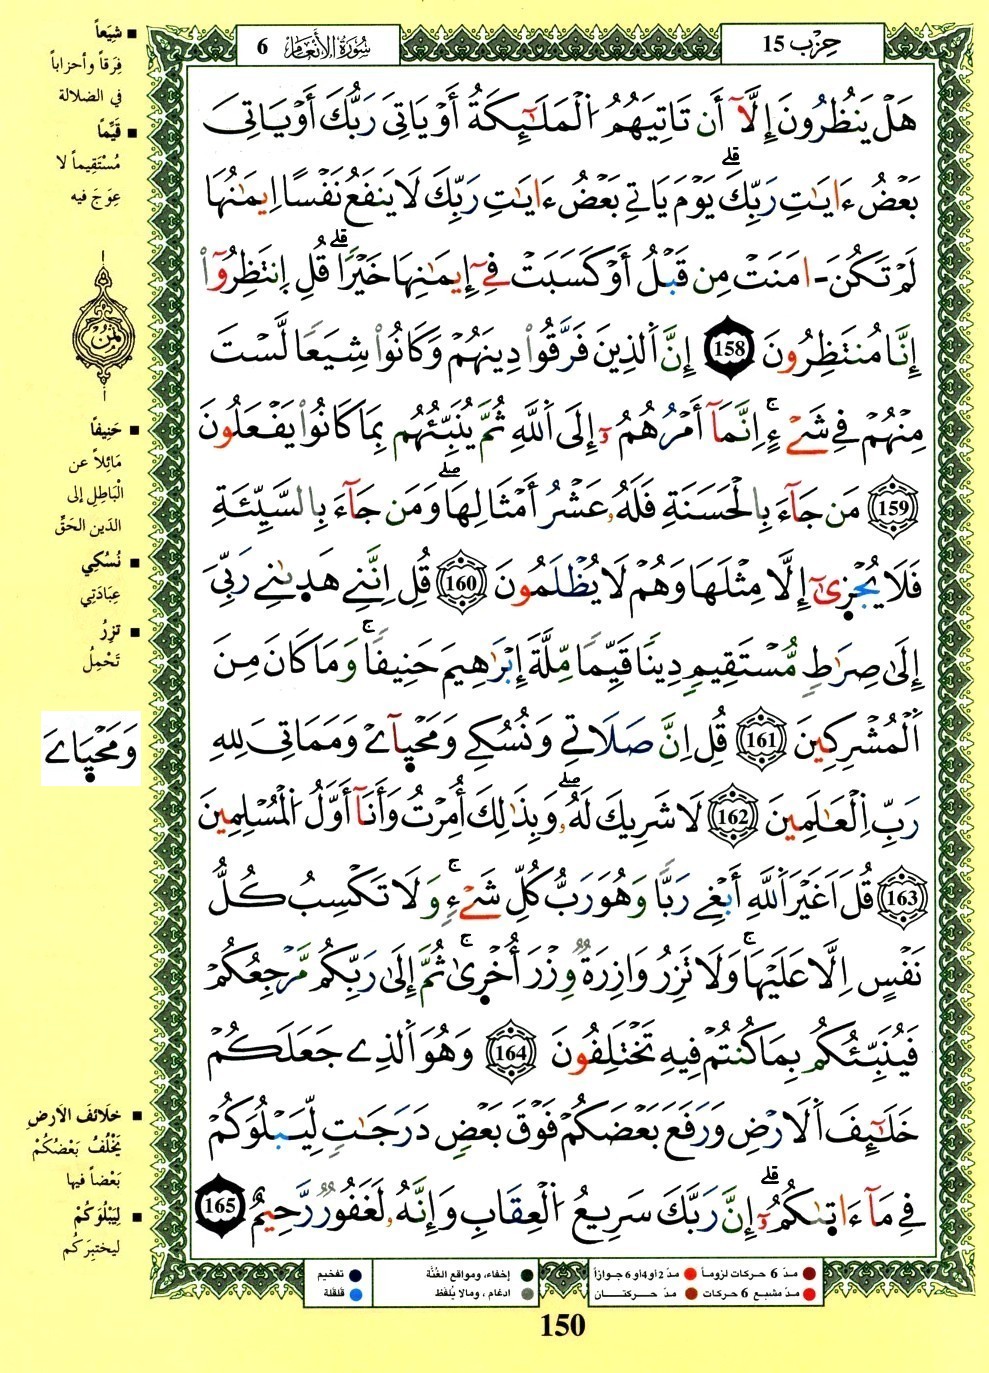 حِزْب 15
سُورَةُ الأَنْعَامِ 6
هَلْ يَنظُرُونَ إِلَّآ أَن تَاتِيَهُمُ الْمَلَٰٓئِكَةُ أَوْ يَاتِيَ رَبُّكَ أَوْ يَاتِيَ
بَعْضُ ءَايَٰتِ رَبِّكَ قلے يَوْمَ يَاتِے بَعْضُ ءَايَٰتِ رَبِّكَ لَا يَنفَعُ نَفْسًا اِيمَٰنُهَا
لَمْ تَكُنَ ـ امَنَتْ مِن قَبْلُ أَوْ كَسَبَتْ فِےٓ إِيمَٰنِهَا خَيْرًا قلے قُلِ اِنتَظِرُوٓاْ
إِنَّا مُنتَظِرُونَ 158 إِنَّ اَلذِينَ فَرَّقُواْ دِينَهُمْ وَكَانُواْ شِيَعًا لَّسْتَ
مِنْهُمْ فِے شَےْءٍ ج اِنَّمَآ أَمْرُهُمُۥٓ إِلَى اَللَّهِ ثُمَّ يُنَبِّئُهُم بِمَا كَانُواْ يَفْعَلُونَ
159 مَن جَآءَ بِالْحَسَنَةِ فَلَهُۥ عَشْرُ أَمْثَالِهَا صلے وَمَن جَآءَ بِالسَّيِّئَةِ
فَلَا يُجْزَىٰٓ إِلَّا مِثْلَهَا وَهُمْ لَا يُظْلَمُونَ 160 قُلِ اِنَّنِے هَدٜىٰنِے رَبِّيَ
إِلَىٰ صِرَٰطٍ مُّسْتَقِيمٍ دِينًا قَيِّمًا مِّلَّةَ إِبْرَٰهِيمَ حَنِيفًا ج وَمَا كَانَ مِنَ
اَلْمُشْرِكِينَ 161 قُلِ اِنَّ صَلَاتِے وَنُسُكِے وَمَحْيٜآےْ وَمَمَاتِيَ لِلهِ
رَبِّ اِلْعَٰلَمِينَ 162 لَا شَرِيكَ لَهُۥ صلے وَبِذَٰلِكَ أُمِرْتُ وَأَنَآ أَوَّلُ اُلْمُسْلِمِينَ
163 قُلَ اَغَيْرَ اَللَّهِ أَبْغِے رَبًّا وَهُوَ رَبُّ كُلِّ شَےْءٍ ج وَلَا تَكْسِبُ كُلُّ
نَفْسٍ اِلَّا عَلَيْهَا ج وَلَا تَزِرُ وَازِرَةٌ وِزْرَ أُخْرٜىٰ ج ثُمَّ إِلَىٰ رَبِّكُم مَّرْجِعُكُمْ
فَيُنَبِّئُكُم بِمَا كُنتُمْ فِيهِ تَخْتَلِفُونَ 164 وَهُوَ اَلذِے جَعَلَكُمْ
خَلَٰٓئِفَ اَلَارْضِ وَرَفَعَ بَعْضَكُمْ فَوْقَ بَعْضٍ دَرَجَٰتٍ لِّيَبْلُوَكُمْ
فِے مَآ ءَاتٜىٰكُمُۥٓ قلے إِنَّ رَبَّكَ سَرِيعُ اُلْعِقَابِ وَإِنَّهُۥ لَغَفُورٌ رَّحِيمٌ 165
شِيَعاً
فِرَقاً وأحزاباً
في الضلالة
قَيِّمًا
مُسْتَقِيماً لا
عِوَجَ فيه
ثُمُن
حَنِيفًا
مَائِلاً عن
الْبَاطِلِ إلى
الدِين الحَقِّ
نُسُكِي
عِبَادَتِي
تزِرُ
تَحْمِلُ
وَمَحْيٜاےَ
خلَائفَ الاَرضِ
يَخْلُفُ بَعْضُكُمْ
بَعْضاً فيها
لِيَبْلُوَكُمْ
ليختبِرَكُم
مدّ 6 حركات لزوماً
مدّ 2 أو 4 أو 6 جوازاً
مدّ مشبع 6 حركات
مدّ حركتان
إخفاء، ومواقع الغُنَّة
ادغام، ومالا يُلفَظ
تفخيم
قلقلة
150